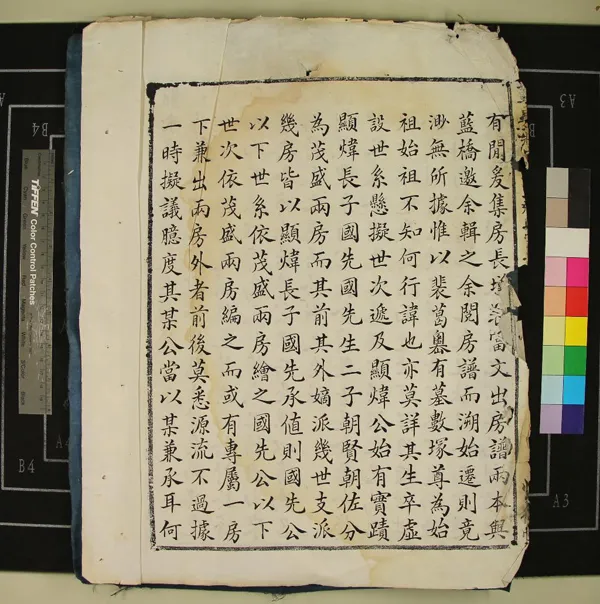 有閒爰集房長富文出房譜兩本與
藍橋邀余輯之余閱房譜而溯始遷則竟
渺無所據惟以裴葛嶴有墓數塚尊為始
祖始祖不知何行諱也亦莫詳其生卒虛
設世系懸擬世次遞及顯煒公始有實蹟
顯煒長子國先國先生二子朝賢朝佐分
為茂盛兩房而其前其外嫡派幾世支派
幾房皆以顯煒長子國先承值則國先公
以下世系依茂盛兩房繪之國先公以下
世次依茂盛兩房編之而或有專屬一房
下兼出兩房外者前後莫悉源流不過據
一時擬議臆度其某公當以某兼承耳何
TIFFEN Color Control Patches
B4
B4
A3
A3